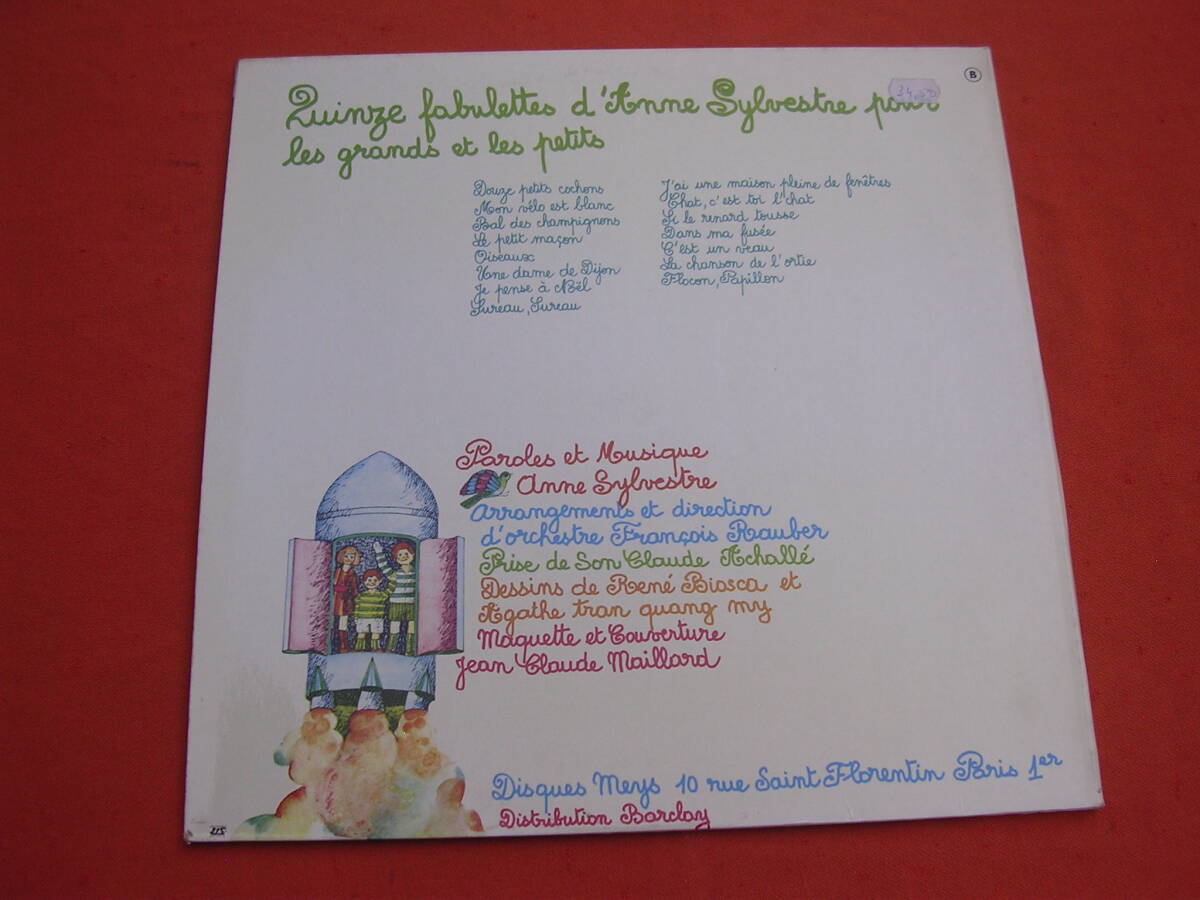 Quinze fabulettes d'Anne Sylvestre pour
les grands et les petits
B
Douze petits cochons
Mon vélo est blanc
Bal des champignons
Le petit maçon
Oiseaux
Une dame de Dijon
Je pense à Noël
Sureau, Sureau
J'ai une maison pleine de fenêtres
Chat, c'est toi l'chat
Si le renard tousse
Dans ma fusée
C'est un veau
La chanson de l'ortie
Flocon, Papillon
Paroles et Musique
Anne Sylvestre
Arrangements et direction
d'orchestre François Rauber
Prise de Son Claude Achallé
Dessins de René Biosca et
Agathe tran quang my
Maquette et Couverture
Jean Claude Maillard
Disques Meys 10 rue Saint Florentin Paris 1er
Distribution Barclay